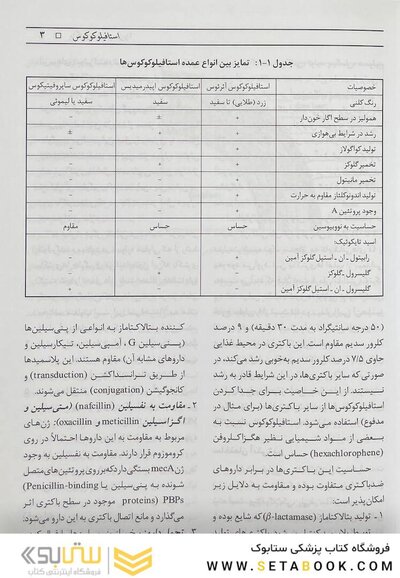 استافیلوکوکوس □ ۳
جدول ۱-۱: تمایز بین انواع عمده استافیلوکوکوس‌ها
خصوصیات استافیلوکوکوس آرئوس استافیلوکوکوس اپیدرمیدیس استافیلوکوکوس ساپروفیتیکوس
رنگ کلنی زرد (طلایی) تا سفید سفید سفید یا لیموئی
همولیز در سطح آگار خون‌دار + ± -
رشد در شرایط بی‌هوازی + + ±
تولید کواگولاز + - -
تخمیر گلوکز + + -
تخمیر مانیتول + - -
تولید اندونوکلئاز مقاوم به حرارت + - -
وجود پروتئین A + - -
حساسیت به نووبیوسین حساس حساس مقاوم
اسید تایکوئیک:
رایبتول ـ ان ـ استیل گلوکز آمین + - -
گلیسرول ـ گلوکز - + -
گلیسرول ـ ان ـ استیل گلوکز آمین
(۵۰ درجه سانتیگراد به مدت ۳۰ دقیقه) و ۹ درصد
کلرور سدیم مقاوم است. این باکتری در محیط غذایی
حاوی ۷/۵ درصد کلرور سدیم به‌خوبی رشد می‌کند، در
صورتی که سایر باکتری‌ها، در این شرایط قادر به رشد
نیستند. از این خاصیت برای جدا کردن
استافیلوکوکوس‌ها از سایر باکتری‌ها (برای مثال در
مدفوع) استفاده می‌شود. استافیلوکوکوس نسبت به
بعضی از مواد شیمیایی نظیر هگزاکلروفن
(hexachlorophene) حساس است.
حساسیت این باکتری‌ها در برابر داروهای
ضدباکتری متفاوت بوده و مقاومت به دلایل زیر
امکان‌پذیر است:
۱ـ تولید بتالاکتاماز (β-lactamase) که شایع بوده و
کننده بتالاکتاماز به انواعی از پنی‌سیلین‌ها
(پنی‌سیلین G، آمپی‌سیلین، تیکارسیلین و
داروهای مشابه آن) مقاوم هستند. این پلاسمیدها
از طریق ترانسداکشن (transduction) و
کانجوگیشن (conjugation) منتقل می‌شوند.
۲ـ مقاومت به نفسیلین (nafcillin) (متی‌سیلین و
اگزاسیلین meticillin و oxacillin): ژن‌های
مربوط به مقاومت به این داروها احتمالاً در روی
کروموزوم قرار دارند. مقاومت به نفسیلین به وجود
ژن mecA بستگی دارد که بر روی پروتئین‌های متصل
شونده به پنی‌سیلین یا (Penicillin-binding
proteins) PBPs موجود در سطح باکتری اثر
می‌گذارد و مانع اتصال باکتری به این دارو می‌شود.
فروشگاه کتاب پزشکی ستابوک
WWW.SETABOOK.COM
ستابوک
فروشگاه اینترنتی کتاب